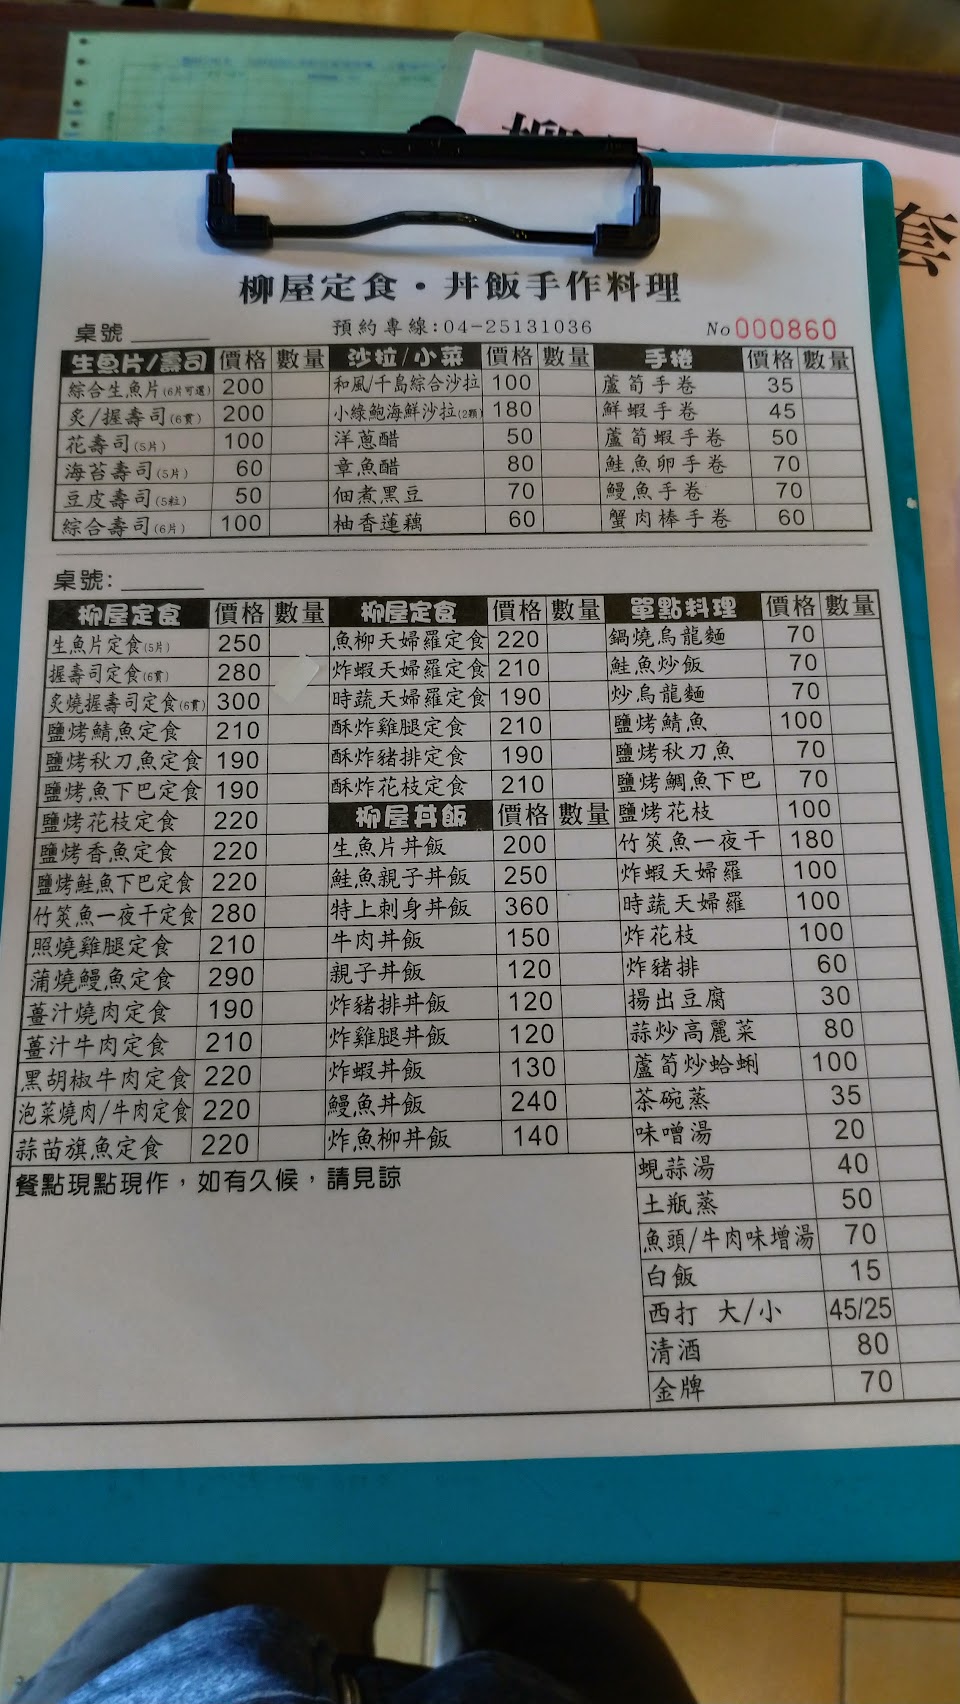 套
柳屋定食·丼飯手作料理
桌號 預約專線:04-25131036 No 000860
生魚片/壽司 價格 數量 沙拉/小菜 價格 數量 手捲 價格 數量
綜合生魚片(6片可選) 200 和風/千島綜合沙拉 100 蘆筍手卷 35
炙/握壽司(6貫) 200 小綠鮑海鮮沙拉(2顆) 180 鮮蝦手卷 45
花壽司(5片) 100 洋蔥醋 50 蘆筍蝦手卷 50
海苔壽司(5片) 60 章魚醋 80 鮭魚卵手卷 70
豆皮壽司(5粒) 50 佃煮黑豆 70 鰻魚手卷 70
綜合壽司(6片) 100 柚香蓮藕 60 蟹肉棒手卷 60
桌號:
柳屋定食 價格 數量 柳屋定食 價格 數量 單點料理 價格 數量
生魚片定食(5片) 250 魚柳天婦羅定食 220 鍋燒烏龍麵 70
握壽司定食(6貫) 280 炸蝦天婦羅定食 210 鮭魚炒飯 70
炙燒握壽司定食(6貫) 300 時蔬天婦羅定食 190 炒烏龍麵 70
鹽烤鯖魚定食 210 酥炸雞腿定食 210 鹽烤鯖魚 100
鹽烤秋刀魚定食 190 酥炸豬排定食 190 鹽烤秋刀魚 70
鹽烤魚下巴定食 190 酥炸花枝定食 210 鹽烤鯛魚下巴 70
鹽烤花枝定食 220 柳屋丼飯 價格 數量 鹽烤花枝 100
鹽烤香魚定食 220 生魚片丼飯 200 竹筴魚一夜干 180
鹽烤鮭魚下巴定食 220 鮭魚親子丼飯 250 炸蝦天婦羅 100
竹筴魚一夜干定食 280 特上刺身丼飯 360 時蔬天婦羅 100
照燒雞腿定食 210 牛肉丼飯 150 炸花枝 100
蒲燒鰻魚定食 290 親子丼飯 120 炸豬排 60
薑汁燒肉定食 190 炸豬排丼飯 120 揚出豆腐 30
薑汁牛肉定食 210 炸雞腿丼飯 120 蒜炒高麗菜 80
黑胡椒牛肉定食 220 炸蝦丼飯 130 蘆筍炒蛤蜊 100
泡菜燒肉/牛肉定食 220 鰻魚丼飯 240 茶碗蒸 35
蒜苗旗魚定食 220 炸魚柳丼飯 140 味噌湯 20
餐點現點現作，如有久候，請見諒
蜆蒜湯 40
土瓶蒸 50
魚頭/牛肉味增湯 70
白飯 15
西打 大/小 45/25
清酒 80
金牌 70